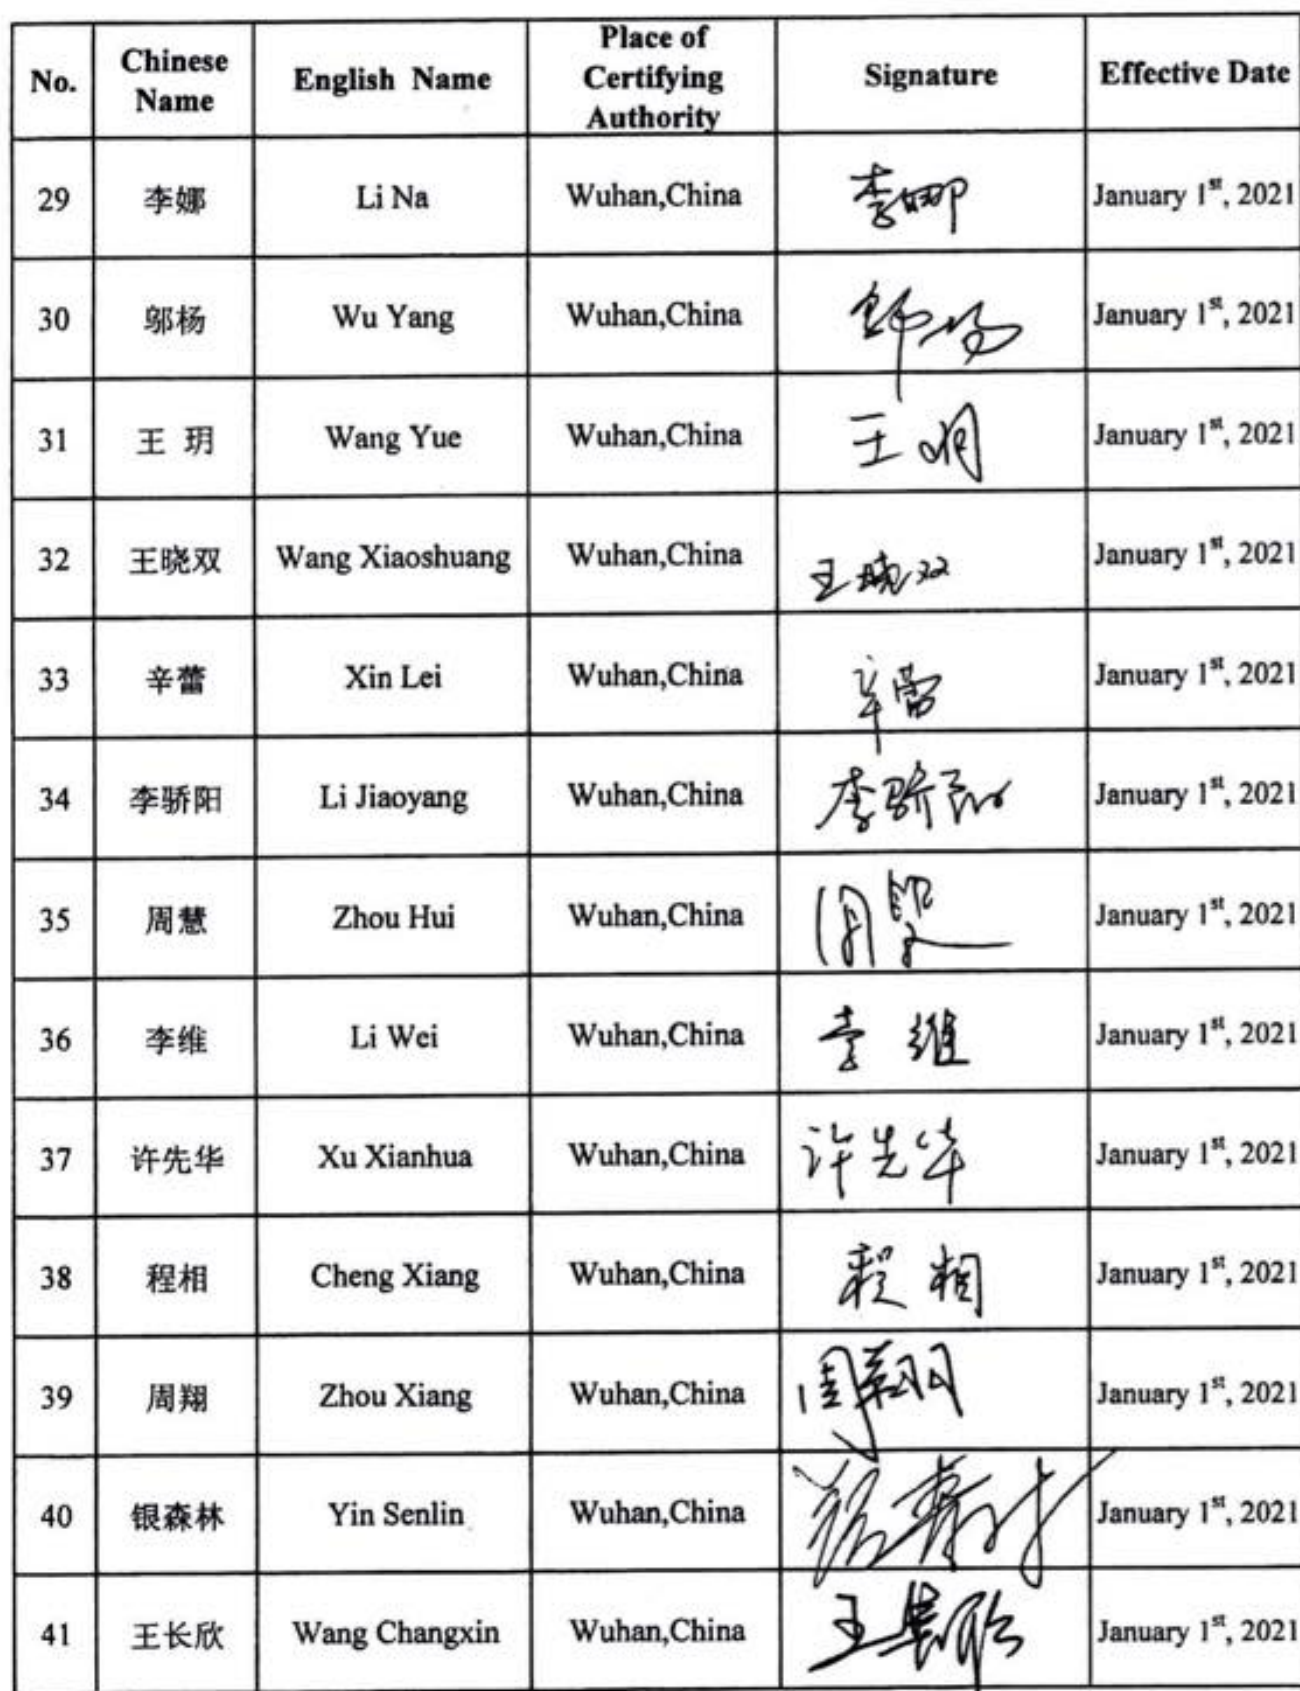 No. Chinese Name English Name Place of Certifying Authority Signature Effective Date
29 李娜 Li Na Wuhan,China 李娜 January 1st, 2021
30 邬杨 Wu Yang Wuhan,China 邬杨 January 1st, 2021
31 王 玥 Wang Yue Wuhan,China 王玥 January 1st, 2021
32 王晓双 Wang Xiaoshuang Wuhan,China 王晓双 January 1st, 2021
33 辛蕾 Xin Lei Wuhan,China 辛蕾 January 1st, 2021
34 李骄阳 Li Jiaoyang Wuhan,China 李骄阳 January 1st, 2021
35 周慧 Zhou Hui Wuhan,China 周慧 January 1st, 2021
36 李维 Li Wei Wuhan,China 李维 January 1st, 2021
37 许先华 Xu Xianhua Wuhan,China 许先华 January 1st, 2021
38 程相 Cheng Xiang Wuhan,China 程相 January 1st, 2021
39 周翔 Zhou Xiang Wuhan,China 周翔 January 1st, 2021
40 银森林 Yin Senlin Wuhan,China 银森林 January 1st, 2021
41 王长欣 Wang Changxin Wuhan,China 王长欣 January 1st, 2021